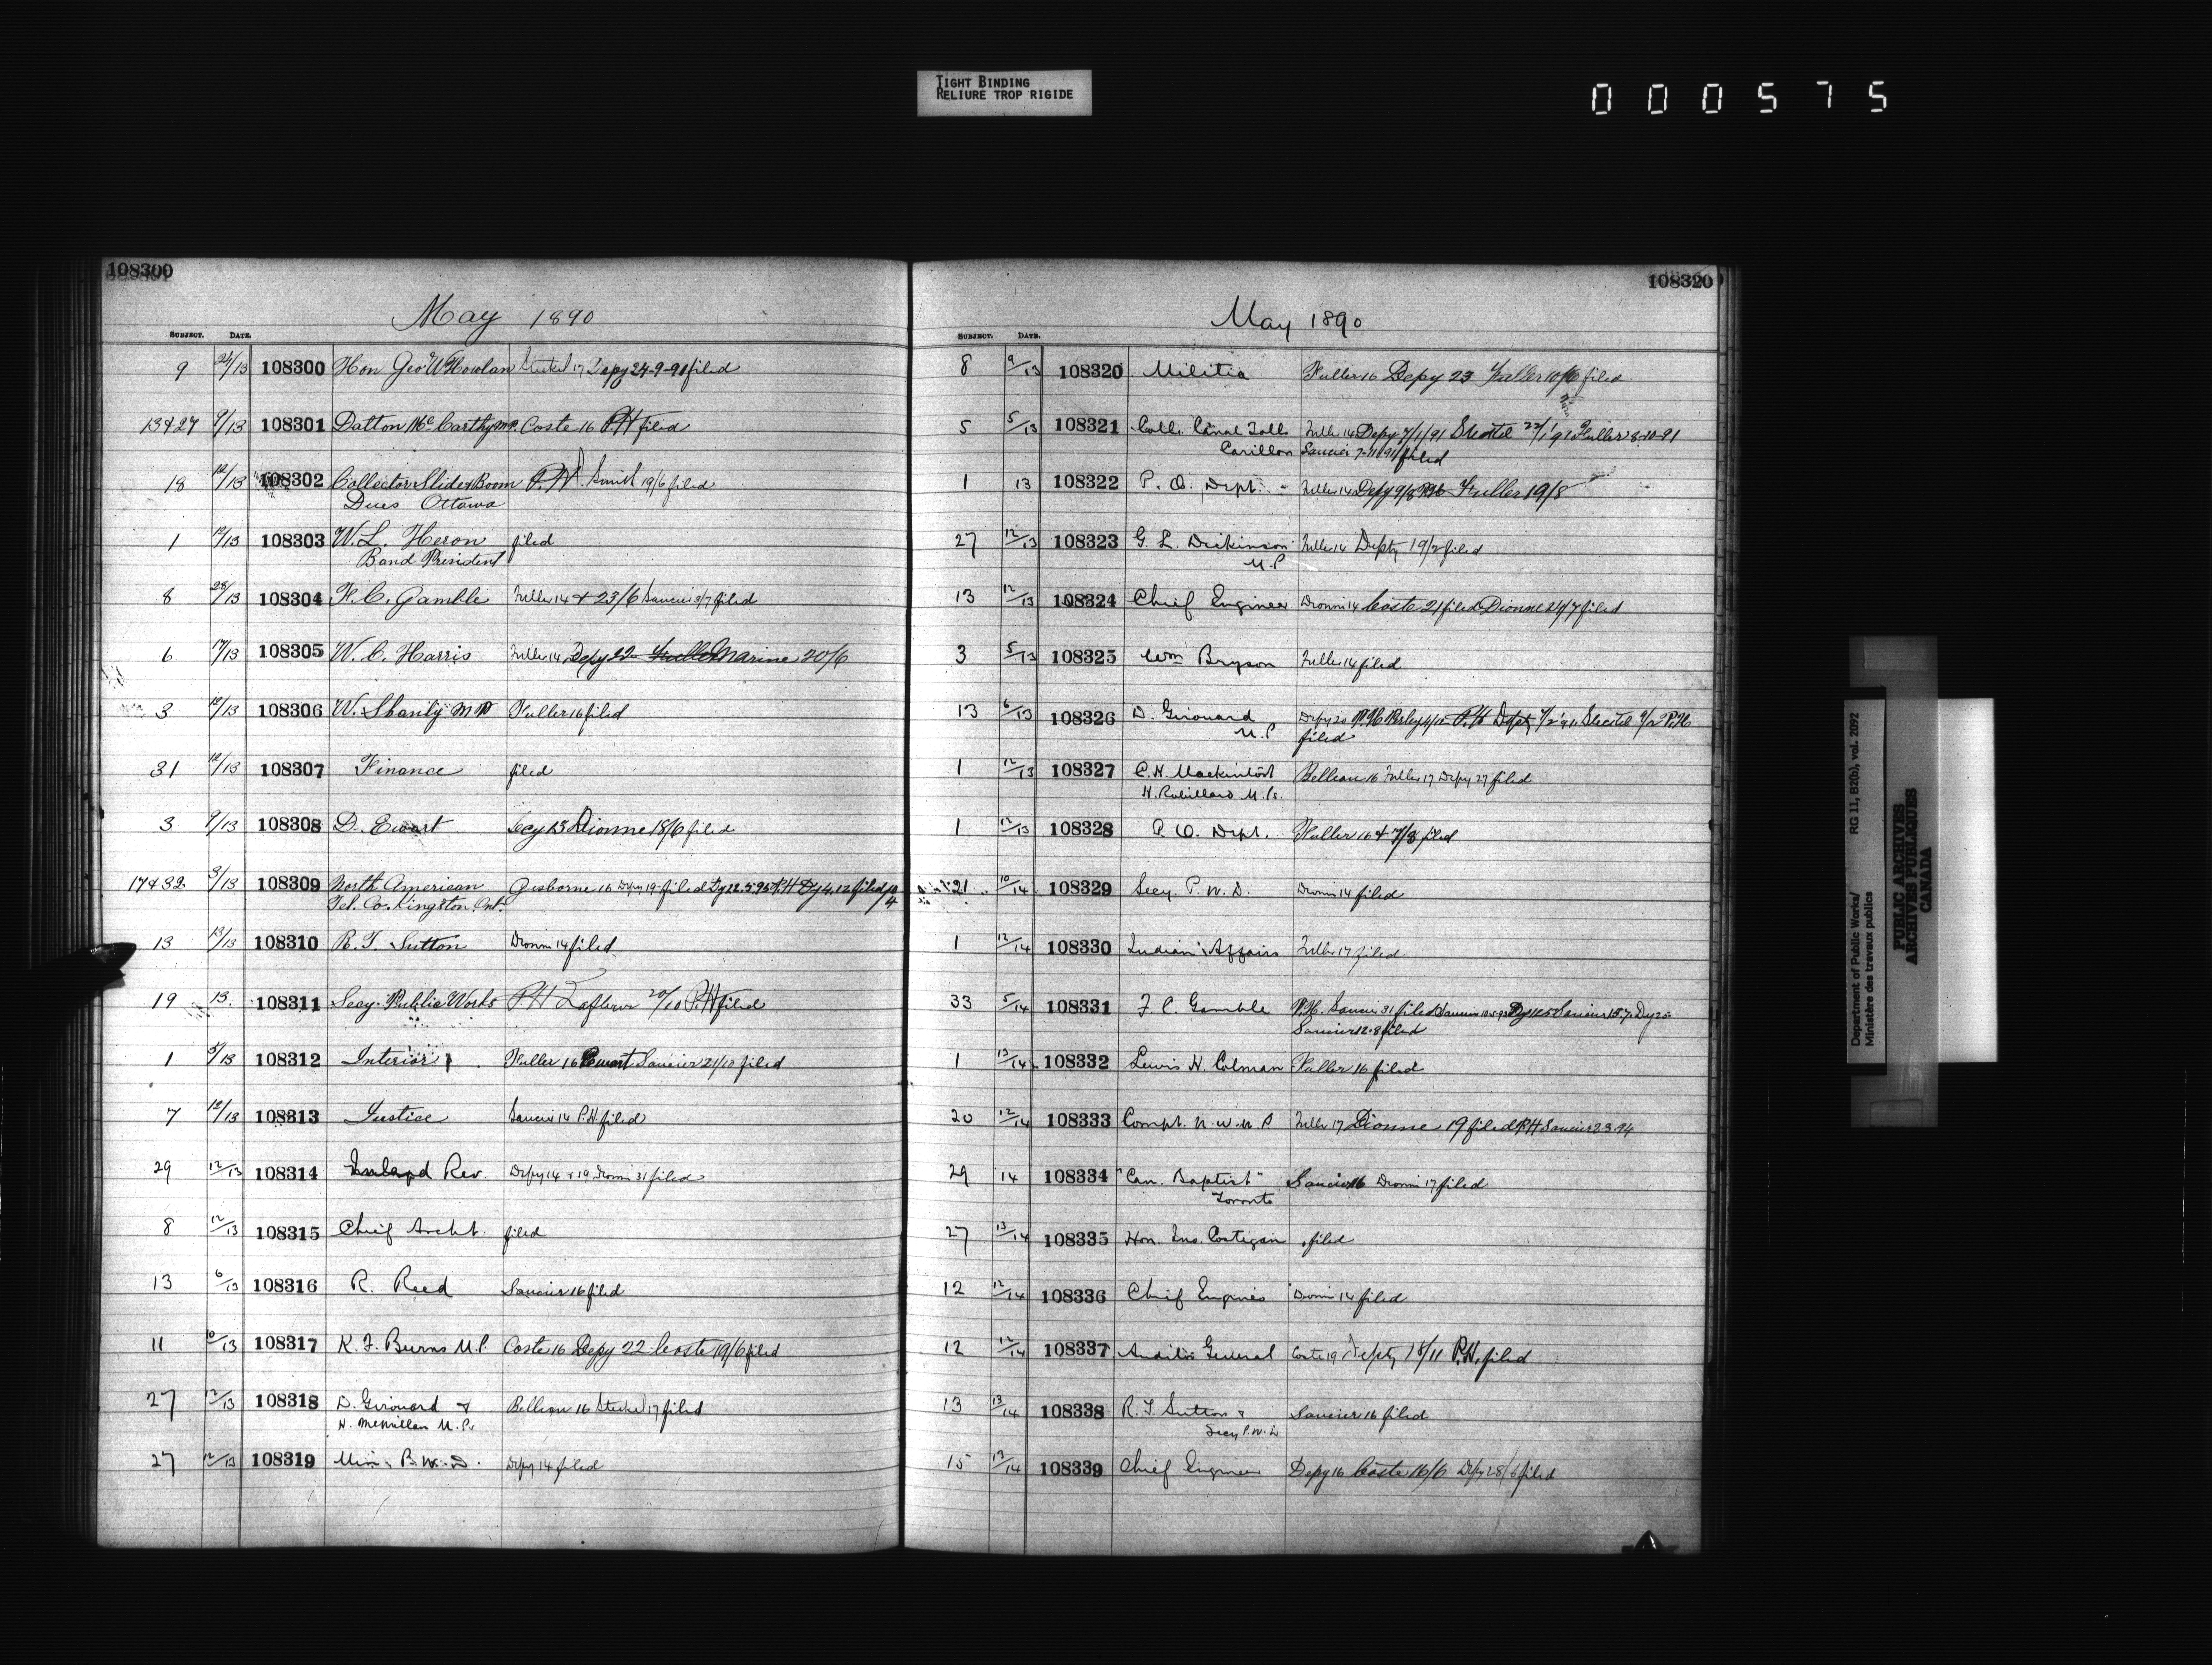 TIGHT BINDING
RELIURE TROP RIGIDE
000575
108300
May 1890
SUBJECT. DATE.
9 24/13 108300 Hon Geo W Howlan Steckel 17 Depy 24-9-90 filed
13 & 27 9/13 108301 Dalton McCarthy M.P. Coste 16 PH filed
18 12/13 108302 Collector Slide & Boom P.H. Smith 19/6 filed
Dues Ottawa
1 12/13 108303 W. L. Heron filed
Band President
8 28/13 108304 F. C. Gamble Fuller 14 & 23/6 Saucier 3/7 filed
6 17/13 108305 W. C. Harris Fuller 14 Depy 22 Fuller Marine 20/6
3 12/13 108306 W. Shanly M P Fuller 16 filed
31 12/13 108307 Finance filed
3 9/13 108308 D. Ewart Secy 13 Dionne 18/6 filed
17 & 32 3/13 108309 North American Gisborne 16 Depy 19 filed Dy 22.5.95 P.H Dy 4.12 filed
Tel. Co. Kingston. Ont.
13 13/13 108310 R. T. Sutton Dionne 14 filed
19 13. 108311 Secy. Public Works P.H Lafleur 20/10 P.H filed
1 5/13 108312 Interior Fuller 16 Ewart Saucier 21/10 filed
7 12/13 108313 Justice Saucier 14 P.H filed
29 12/13 108314 Inland Rev. Depy 14 & 19 Dionne 31 filed
8 12/13 108315 Chief Archt. filed
13 6/13 108316 R. Reed Saucier 16 filed
11 10/13 108317 K. F. Burns M.P. Coste 16 Depy 22 Coste 19/6 filed
27 12/13 108318 D. Girouard & Belleau 16 Steckel 17 filed
H. McMillan M.Ps
27 12/13 108319 Min. P. W. D. Depy 14 filed
108320
May 1890
SUBJECT. DATE.
8 9/13 108320 Militia Fuller 16 Depy 23 Fuller 10/6 filed
5 5/13 108321 Coll. Canal Tolls Fuller 14 Depy 7/1/91 Steckel 22/1 91 Fuller 8-10-91
Carillon Saucier 7-11/91 filed
1 13 108322 P. O. Dept. Fuller 14 Depy 9/8 P.H Fuller 19/8
27 12/13 108323 G. L. Dickinson Fuller 14 Depty 19/2 filed
M.P
13 12/13 108324 Chief Engineer Dionne 14 Coste 21 filed Dionne 21/7 filed
3 5/13 108325 Wm Bryson Fuller 14 filed
13 6/13 108326 D. Girouard Depy 20 P.H Depty Steckel P.H
M.P filed
1 12/13 108327 C. H. Mackintosh Belleau 16 Fuller 17 Depy 27 filed
H. Robillard M.Ps.
1 12/13 108328 P. O. Dept. Fuller 16 & 7/8 filed
21 10/14 108329 Secy. P. W. D. Dionne 14 filed
1 12/14 108330 Indian Affairs Fuller 17 filed
33 5/14 108331 F. C. Gamble P.H. Saucier 31 filed Saucier Saucier 15.7. Dy 25
Saucier 12.8 filed
1 13/14 108332 Lewis H. Colman Fuller 16 filed
20 12/14 108333 Compt. N. W. M. P Fuller 17 Dionne 19 filed P.H Saucier 2.3.94
29 14 108334 "Can. Baptist" Saucier 16 Dionne 17 filed
Toronto
27 13/14 108335 Hon. Jno. Costigan filed
12 12/14 108336 Chief Engineer Dionne 14 filed
12 12/14 108337 Auditor General Coste 19 Depty 18/11 P.H. filed
13 13/14 108338 R. T. Sutton & Saucier 16 filed
Secy P.W.D
15 13/14 108339 Chief Engineer Depy 16 Coste 16/6 Depy 28/6 filed
Department of Public Works/ RG 11, B2(b), vol. 2092
Ministère des travaux publics
PUBLIC ARCHIVES
ARCHIVES PUBLIQUES
CANADA